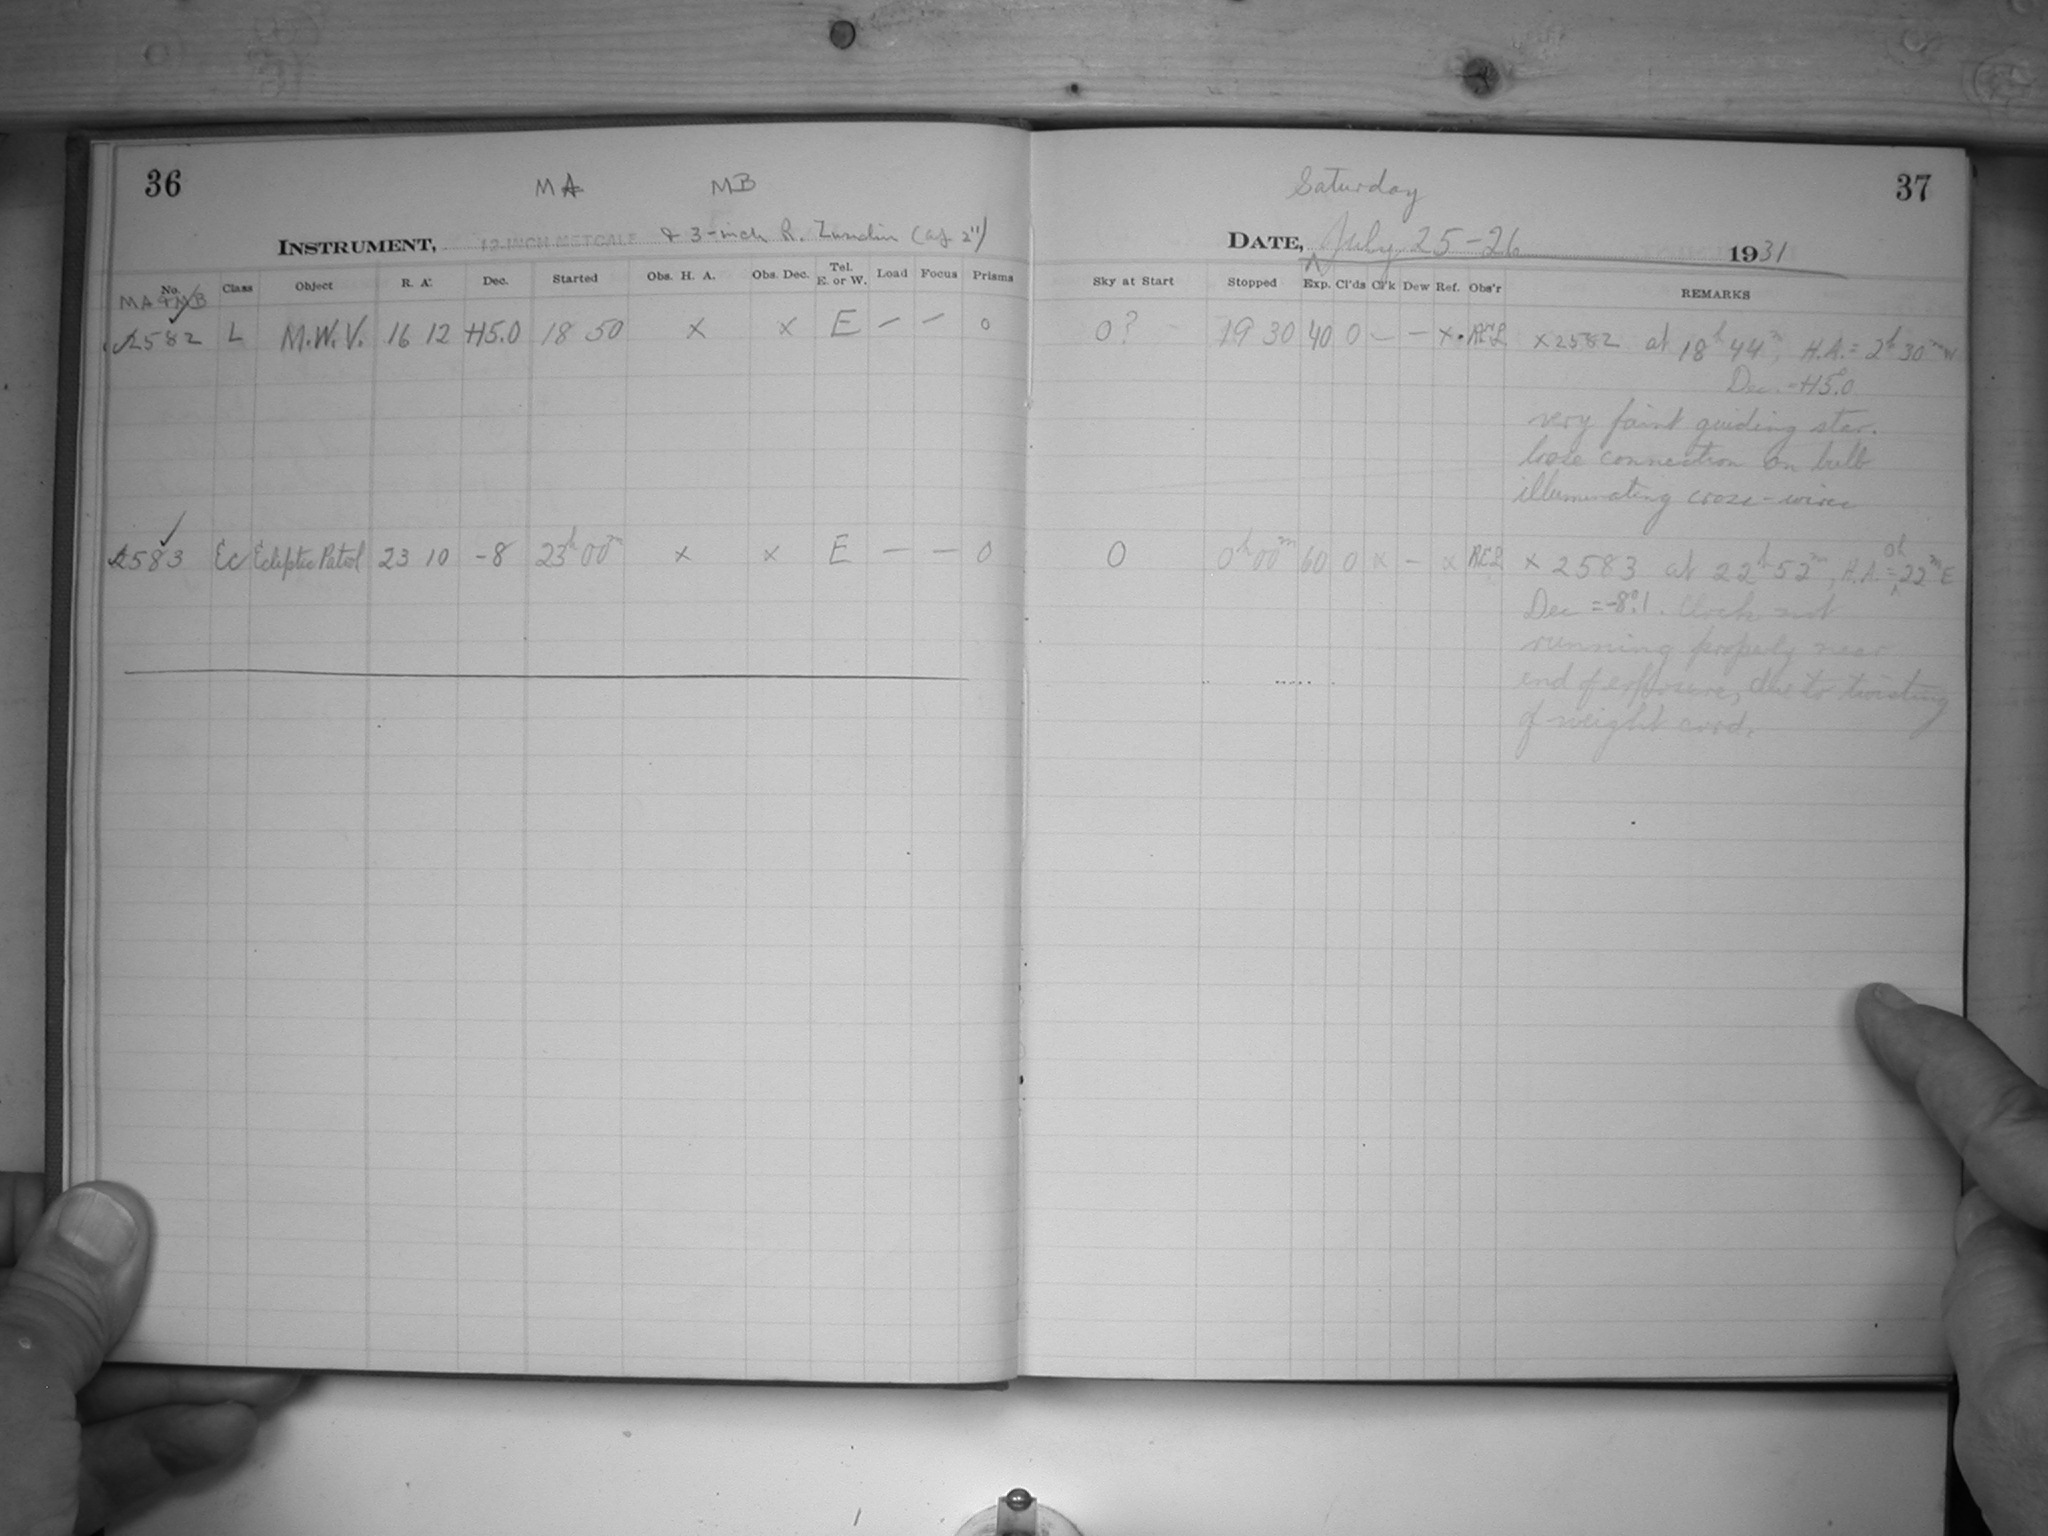 36
MA MB
INSTRUMENT, 12-INCH METCALF & 3-inch R. Lundin (Ap. 2")
No. Class Object R. A. Dec. Started Obs. H. A. Obs. Dec. Tel. E. or W. Load Focus Prisms
MA & MB
2582 L M.W.V. 16 12 +15.0 18 50 x x E — — 0
2583 Ec Ecliptic Patrol 23 10 -8 23h 00m x x E — — 0
37
Saturday
DATE, July 25-26 1931
Sky at Start Stopped Exp. Cl'ds Cl'k Dew Ref. Obs'r REMARKS
0? 19 30 40 0 — — x. x2582 at 18h 44m, H.A. = 2h 30m W
Dec. = +15°.0
very faint guiding star.
loose connection on bulb
illuminating cross-wires
0 0h 00m 60 0 x — x x 2583 at 22h 52m, H.A. = 0h 22m E
Dec = -8°.1. Clock not
running properly near
end of exposure, due to twisting
of weight cord.